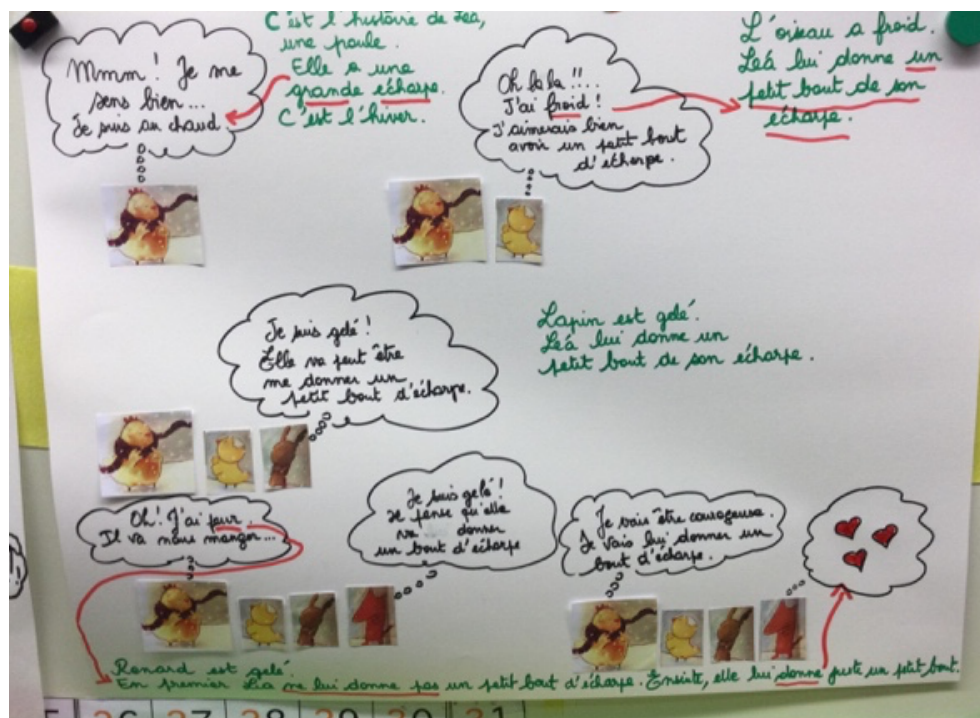 Mmm ! Je me
sens bien...
Je suis au chaud
C'est l'histoire de Léa,
une poule.
Elle a une
grande écharpe.
C'est l'hiver.
Oh la la !!...
J'ai froid !
J'aimerais bien
avoir un petit bout
d'écharpe.
L'oiseau a froid.
Léa lui donne un
petit bout de son
écharpe.
Je suis gelé !
Elle va peut être
me donner un
petit bout d'écharpe.
Lapin est gelé.
Léa lui donne un
petit bout de son écharpe.
Oh ! J'ai peur.
Il va nous manger...
Je suis gelé !
Je pense qu'elle
va donner
un bout d'écharpe
Je vais être courageuse.
Je vais lui donner un
bout d'écharpe.
Renard est gelé.
En premier Léa ne lui donne pas un petit bout d'écharpe. Ensuite, elle lui donne juste un petit bout.
26 27 28 29 30 31